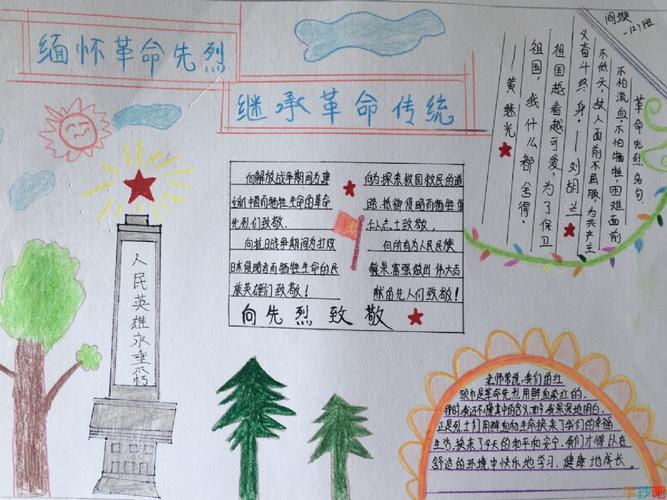 缅怀革命先烈
继承革命传统
向解放战争期间为建
立新中国而牺牲生命的革命
先烈们致敬
向抗日战争期间为打败
日本侵略者而牺牲生命的民
族英雄们致敬！
向为探索救国救民的道
路，抵御侵略而牺牲的
仁人志士致敬。
向所有为人民民族
繁荣富强做出伟大贡
献的先人们致敬！
向先烈致敬
人民英雄永垂不朽
阎
一(2)班
革命先烈名句
不怕流血，不怕牺牲，困难面前
不低头，敌人面前不屈服，为共产主
义奋斗终身。——刘胡兰
祖国越看越可爱，为了保卫
祖国，我什么都舍得。
——黄继光
老师常说，我们的红
领巾是革命先烈用鲜血染红的。
是烈士们用鲜血和生命换来了我们的幸福
生活，换来了今天的和平和安宁，我们才得以在
舒适的环境中快乐地学习，健康地成长。